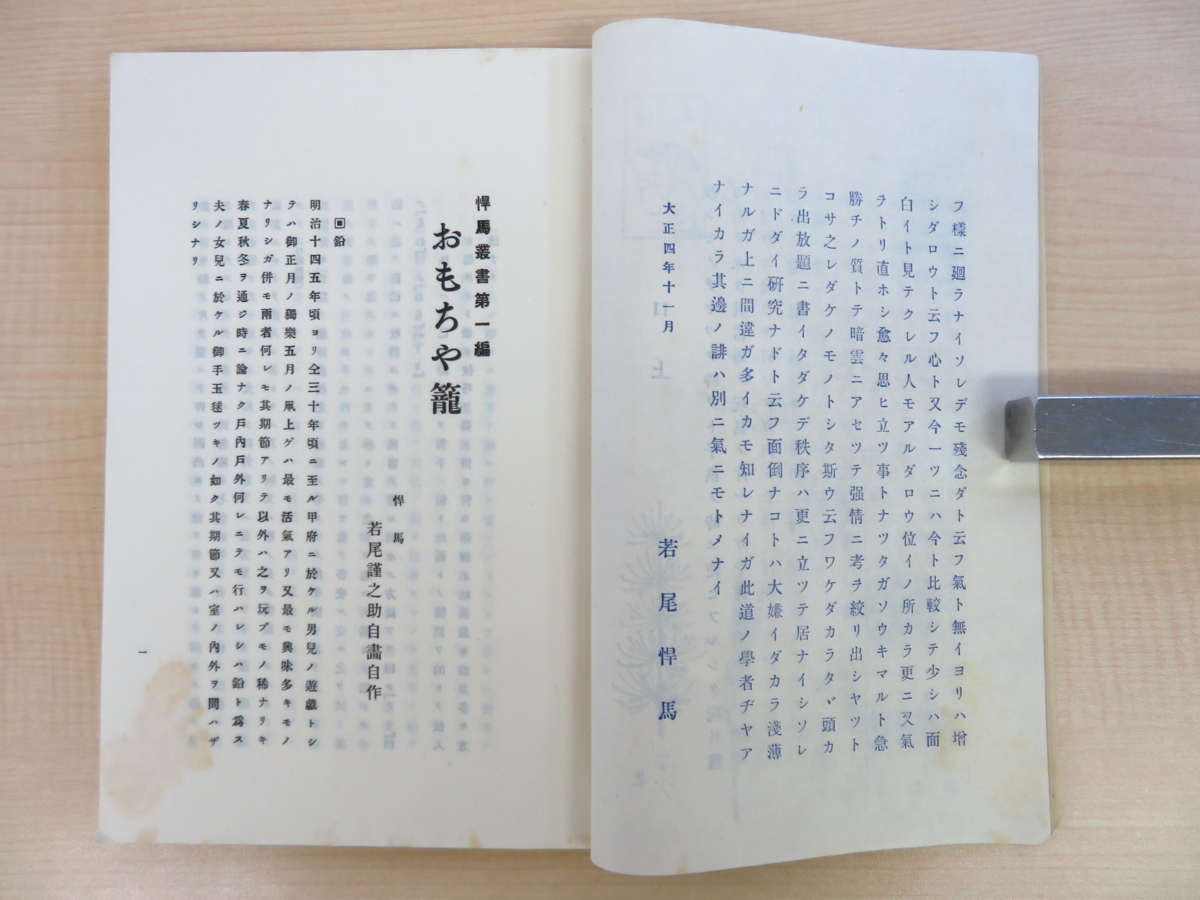 フ樣ニ廻ラナイソレデモ殘念ダト云フ氣ト無イヨリハ增
シダロウト云フ心ト又今一ツニハ今ト比較シテ少シハ面
白イト見テクレル人モアルダロウ位イノ所カラ更ニ又氣
ヲトリ直ホシ愈々思ヒ立ツ事トナツタガソウキマルト急
勝チノ質トテ暗雲ニアセツテ强情ニ考ヲ絞リ出シヤツト
コサ之レダケノモノトシタ斯ウ云フワケダカラタヾ頭カ
ラ出放題ニ書イタダケデ秩序ハ更ニ立ツテ居ナイシソレ
ニドダイ硏究ナドト云フ面倒ナコトハ大嫌イダカラ淺薄
ナルガ上ニ間違ガ多イカモ知レナイガ此道ノ學者ヂヤア
ナイカラ其邊ノ誹ハ別ニ氣ニモトメナイ
大正四年十一月
若尾悍馬
悍馬叢書第一編
おもちや籠
悍馬
若尾謹之助自畵自作
▣鉛
明治十四五年頃ヨリ仝三十年頃ニ至ル甲府ニ於ケル男兒ノ遊戲トシ
テハ御正月ノ獨樂五月ノ凧上ゲハ最モ活氣アリ又最モ興味多キモノ
ナリシガ併モ兩者何レモ其期節アリテ以外ハ之ヲ玩ブモノ稀ナリキ
春夏秋冬ヲ通ジ時ニ論ナク戶內戶外何レニテモ行ハレシハ鉛ト爲ス
夫ノ女兒ニ於ケル御手玉毬ツキノ如ク其期節又ハ室ノ內外ヲ問ハザ
リシナリ
一